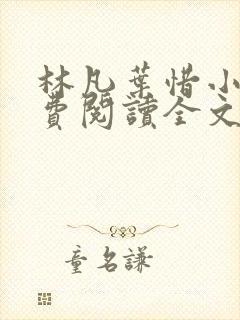 林凡葉惜小
費閱讀全文
童名謙